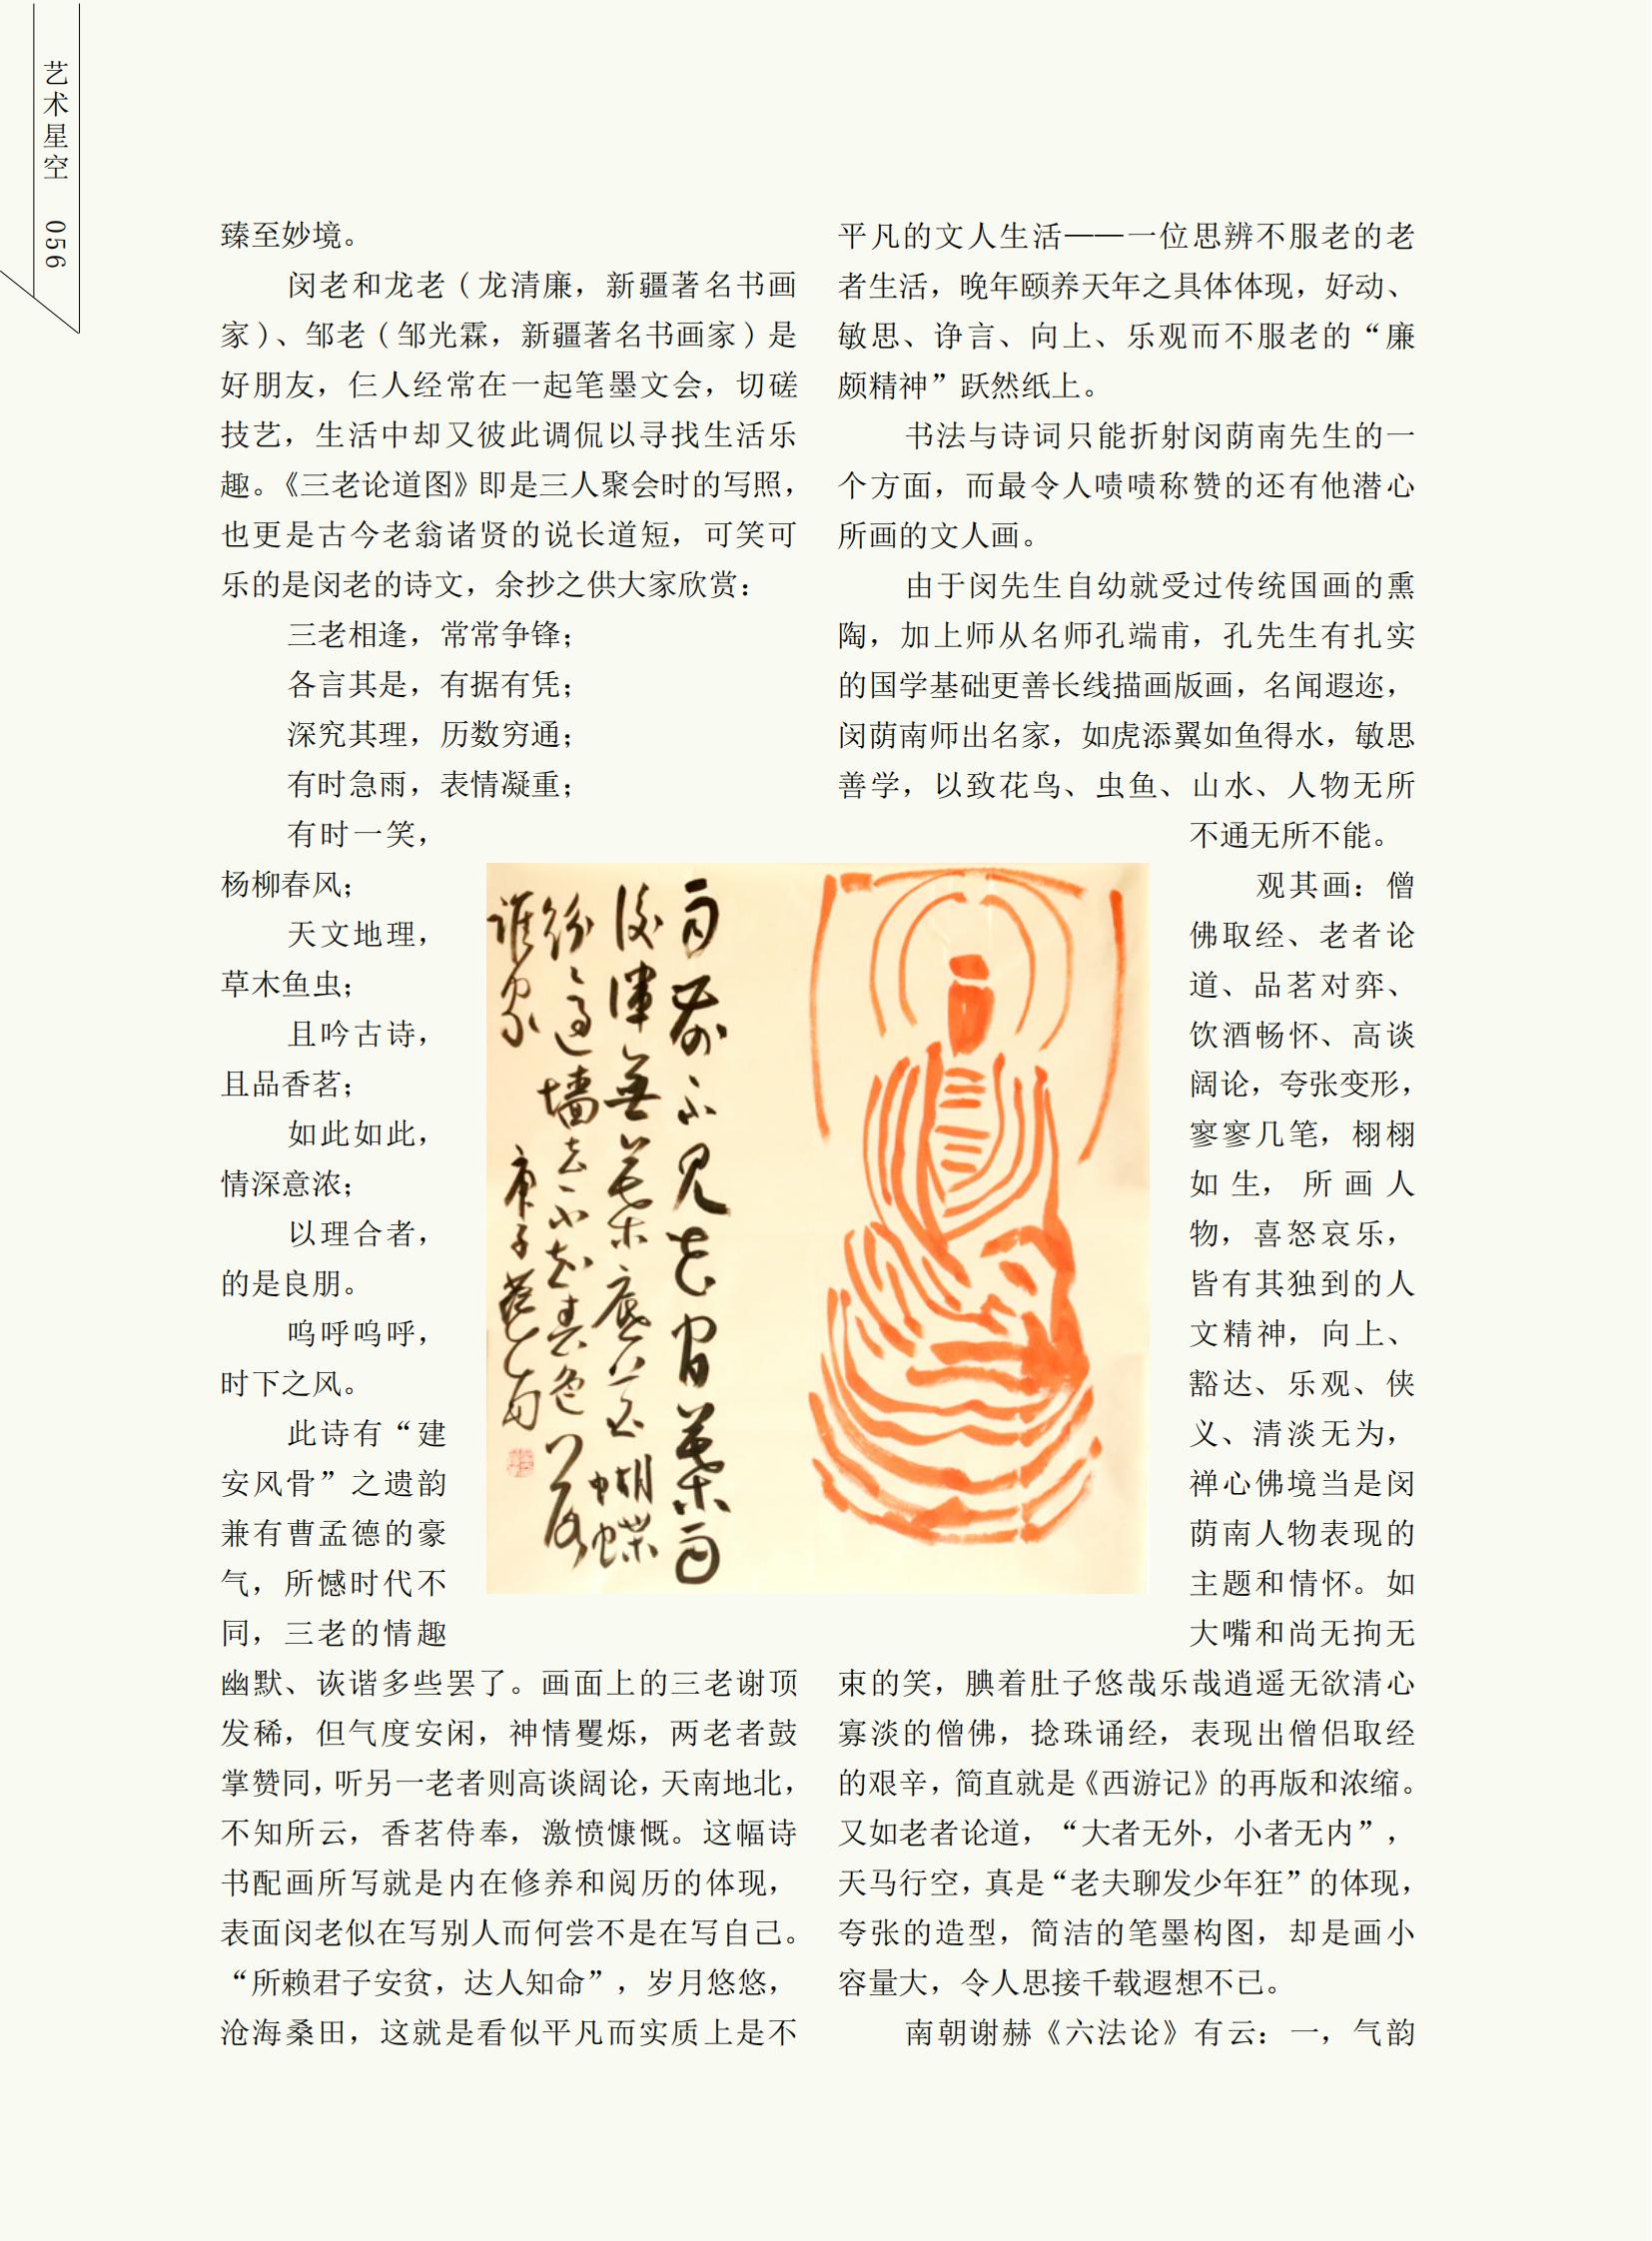 艺术星空 056
臻至妙境。
闵老和龙老（龙清廉，新疆著名书画
家）、邹老（邹光霖，新疆著名书画家）是
好朋友，仨人经常在一起笔墨文会，切磋
技艺，生活中却又彼此调侃以寻找生活乐
趣。《三老论道图》即是三人聚会时的写照，
也更是古今老翁诸贤的说长道短，可笑可
乐的是闵老的诗文，余抄之供大家欣赏：
三老相逢，常常争锋；
各言其是，有据有凭；
深究其理，历数穷通；
有时急雨，表情凝重；
有时一笑，
杨柳春风；
天文地理，
草木鱼虫；
且吟古诗，
且品香茗；
如此如此，
情深意浓；
以理合者，
的是良朋。
呜呼呜呼，
时下之风。
此诗有“建
安风骨”之遗韵
兼有曹孟德的豪
气，所憾时代不
同，三老的情趣
幽默、诙谐多些罢了。画面上的三老谢顶
发稀，但气度安闲，神情矍烁，两老者鼓
掌赞同，听另一老者则高谈阔论，天南地北，
不知所云，香茗侍奉，激愤慷慨。这幅诗
书配画所写就是内在修养和阅历的体现，
表面闵老似在写别人而何尝不是在写自己。
“所赖君子安贫，达人知命”，岁月悠悠，
沧海桑田，这就是看似平凡而实质上是不
雨前不見花間葉雨
後渾無葉底花蝴蝶
紛過墻去不知春色
誰家
庚子荫南
平凡的文人生活——一位思辨不服老的老
者生活，晚年颐养天年之具体体现，好动、
敏思、诤言、向上、乐观而不服老的“廉
颇精神”跃然纸上。
书法与诗词只能折射闵荫南先生的一
个方面，而最令人啧啧称赞的还有他潜心
所画的文人画。
由于闵先生自幼就受过传统国画的熏
陶，加上师从名师孔端甫，孔先生有扎实
的国学基础更善长线描画版画，名闻遐迩，
闵荫南师出名家，如虎添翼如鱼得水，敏思
善学，以致花鸟、虫鱼、山水、人物无所
不通无所不能。
观其画：僧
佛取经、老者论
道、品茗对弈、
饮酒畅怀、高谈
阔论，夸张变形，
寥寥几笔，栩栩
如生，所画人
物，喜怒哀乐，
皆有其独到的人
文精神，向上、
豁达、乐观、侠
义、清淡无为，
禅心佛境当是闵
荫南人物表现的
主题和情怀。如
大嘴和尚无拘无
束的笑，腆着肚子悠哉乐哉逍遥无欲清心
寡淡的僧佛，捻珠诵经，表现出僧侣取经
的艰辛，简直就是《西游记》的再版和浓缩。
又如老者论道，“大者无外，小者无内”，
天马行空，真是“老夫聊发少年狂”的体现，
夸张的造型，简洁的笔墨构图，却是画小
容量大，令人思接千载遐想不已。
南朝谢赫《六法论》有云：一，气韵